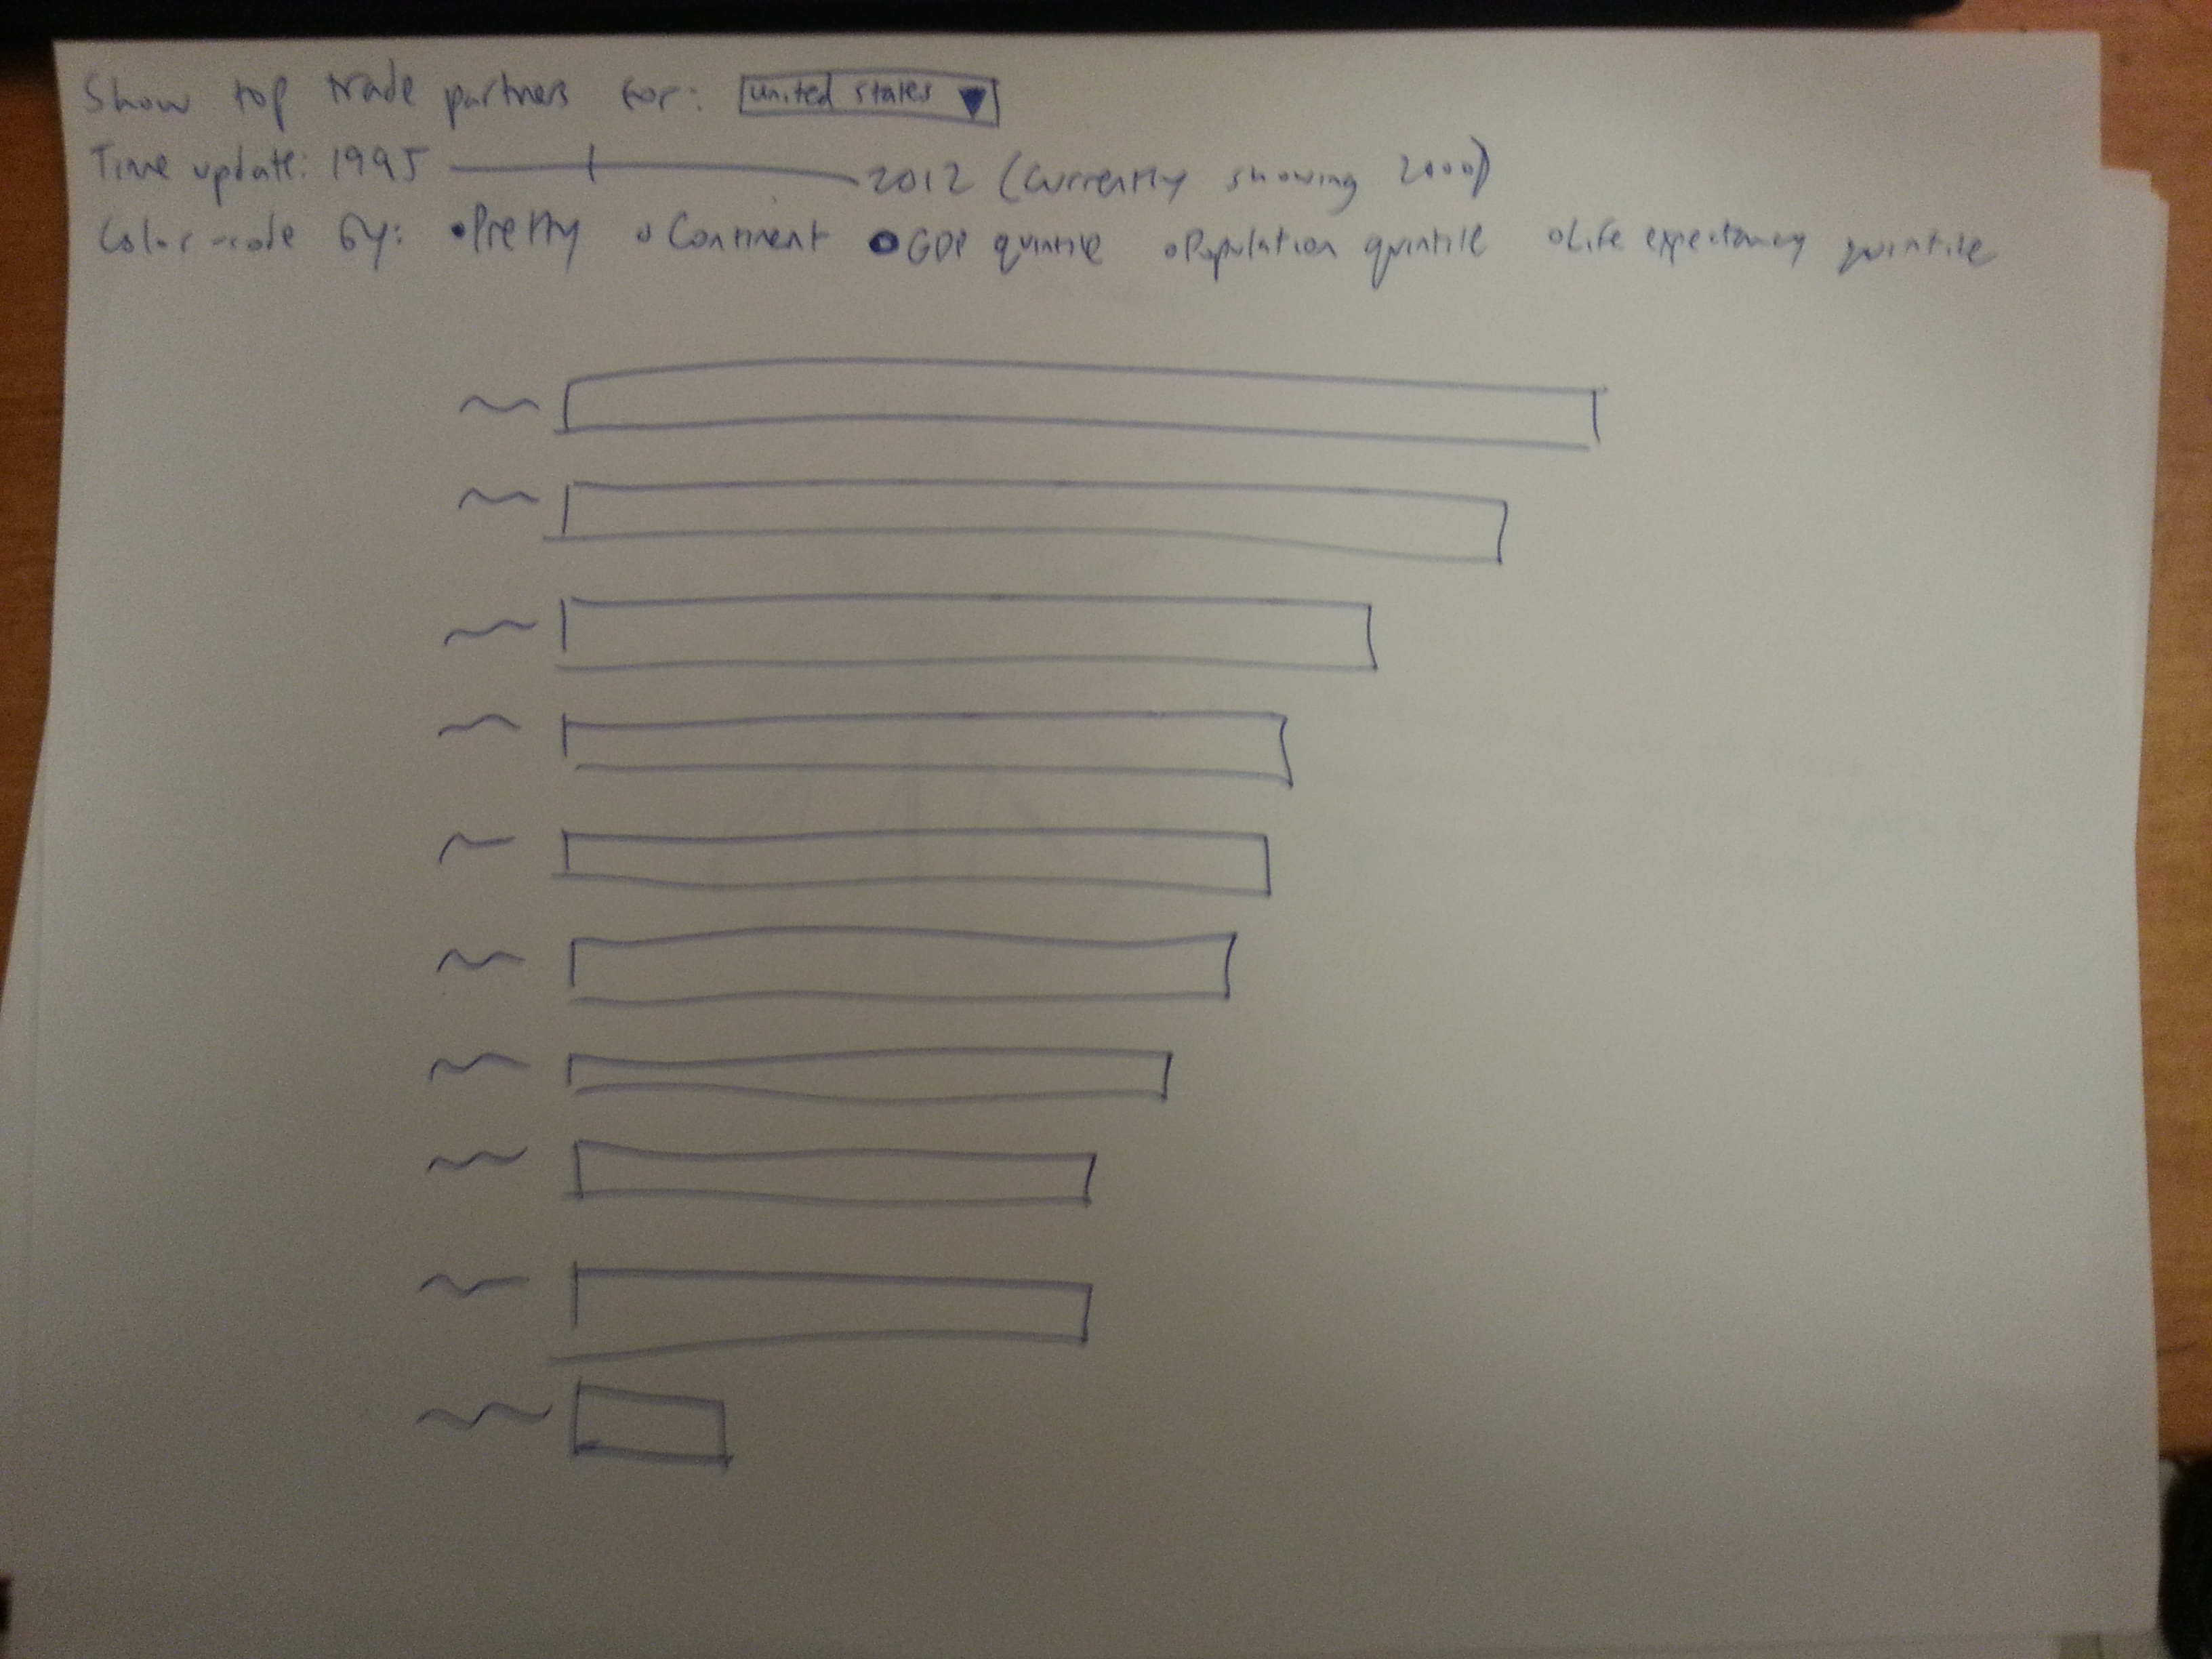 Show top trade partners for: United States
Time update: 1995 2012 (Currently showing 2000)
Color-code by: Pretty Continent GDP quintile Population quintile Life expectancy quintile